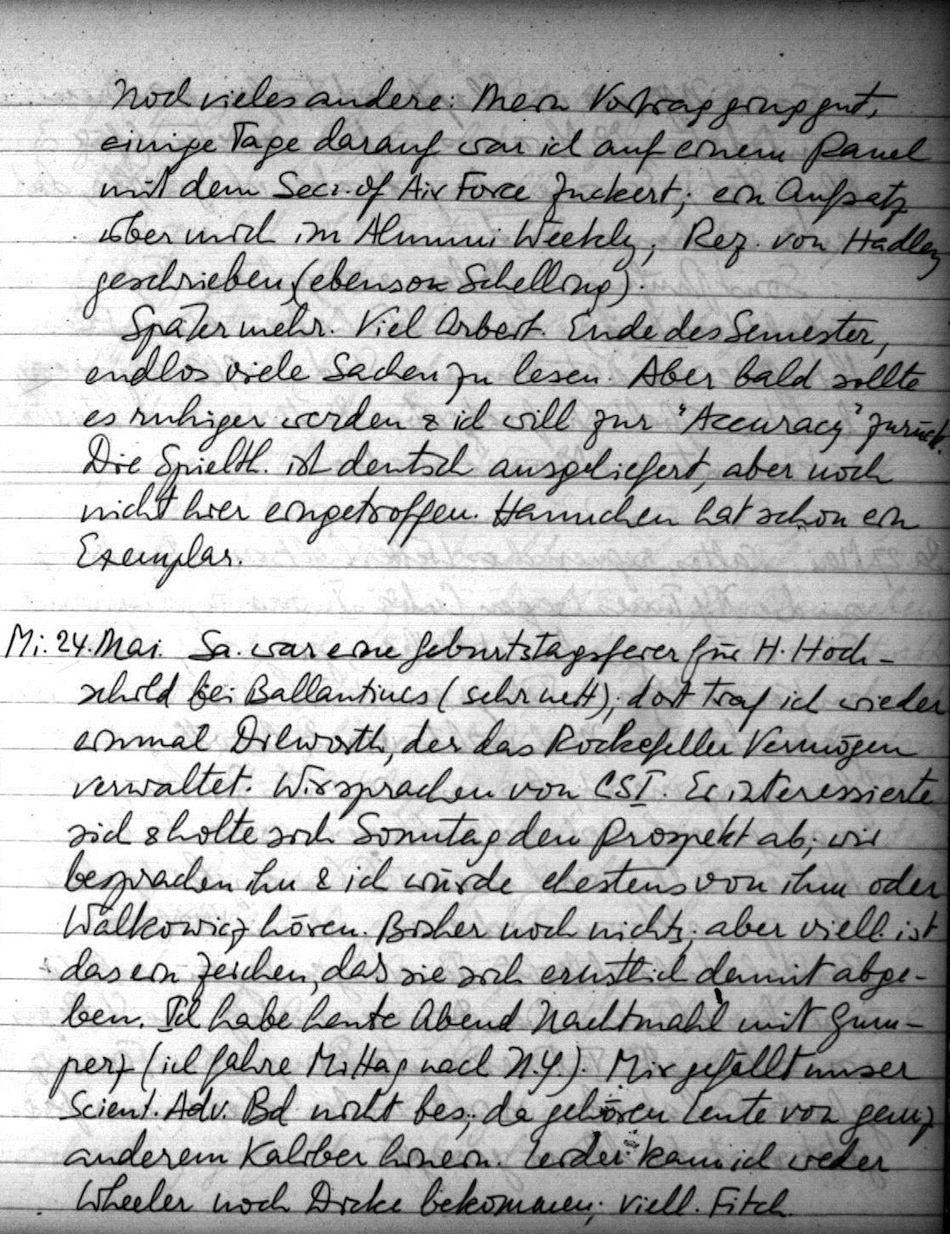 Noch vieles andere: Mein Vortrag ging gut,
einige Tage darauf war ich auf einem Panel
mit dem Secr. of Air Force Zuckert; ein Aufsatz
über mich im Alumni Weekly, Rez. von Hadley
geschrieben (ebenso Schelling).
Später mehr. Viel Arbeit. Ende des Semester,
endlos viele Sachen zu lesen. Aber bald sollte
es ruhiger werden & ich will zur "Accuracy" zurück.
Die Spielth. ist deutsch ausgeliefert, aber noch
nicht hier eingetroffen. Hannchen hat schon ein
Exemplar.
Mi. 24. Mai. Sa. war eine Geburtstagsfeier für H. Hoch-
schild bei Ballantines (sehr nett); dort traf ich wieder
einmal Dilworth, der das Rockefeller Vermögen
verwaltet. Wir sprachen von CSI. Er interessierte
sich & holte sich Sonntag den Prospekt ab; wir
besprachen ihn & ich würde ehestens von ihm oder
Walkowicz hören. Bisher noch nichts; aber viell. ist
das ein Zeichen, das sie sich ernstlich damit abge-
ben. Ich habe heute Abend Nachtmahl mit Gum-
perz (ich fahre Mittag nach N.Y.). Mir gefällt unser
Scient. Adv. Bd nicht bes.; da gehören Leute von ganz
anderem Kaliber hinein. Leider kann ich weder
Wheeler noch Dicke bekommen; viell. Fitch.